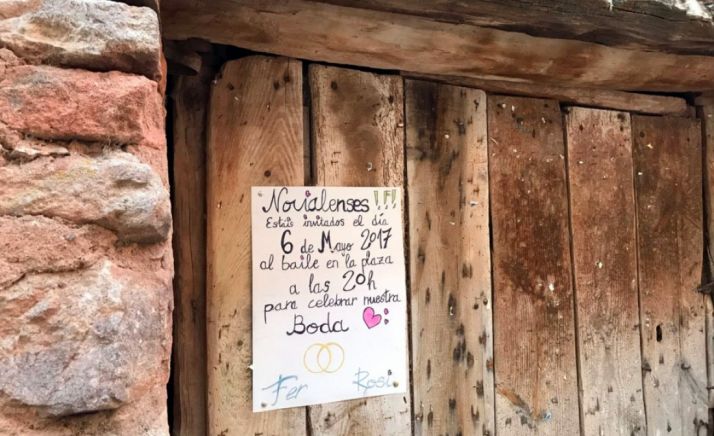 Novialenses !!!
Estáis invitados el día
6 de Mayo 2017
al baile en la plaza
a las 20h
para celebrar nuestra
Boda
Fer Rosi